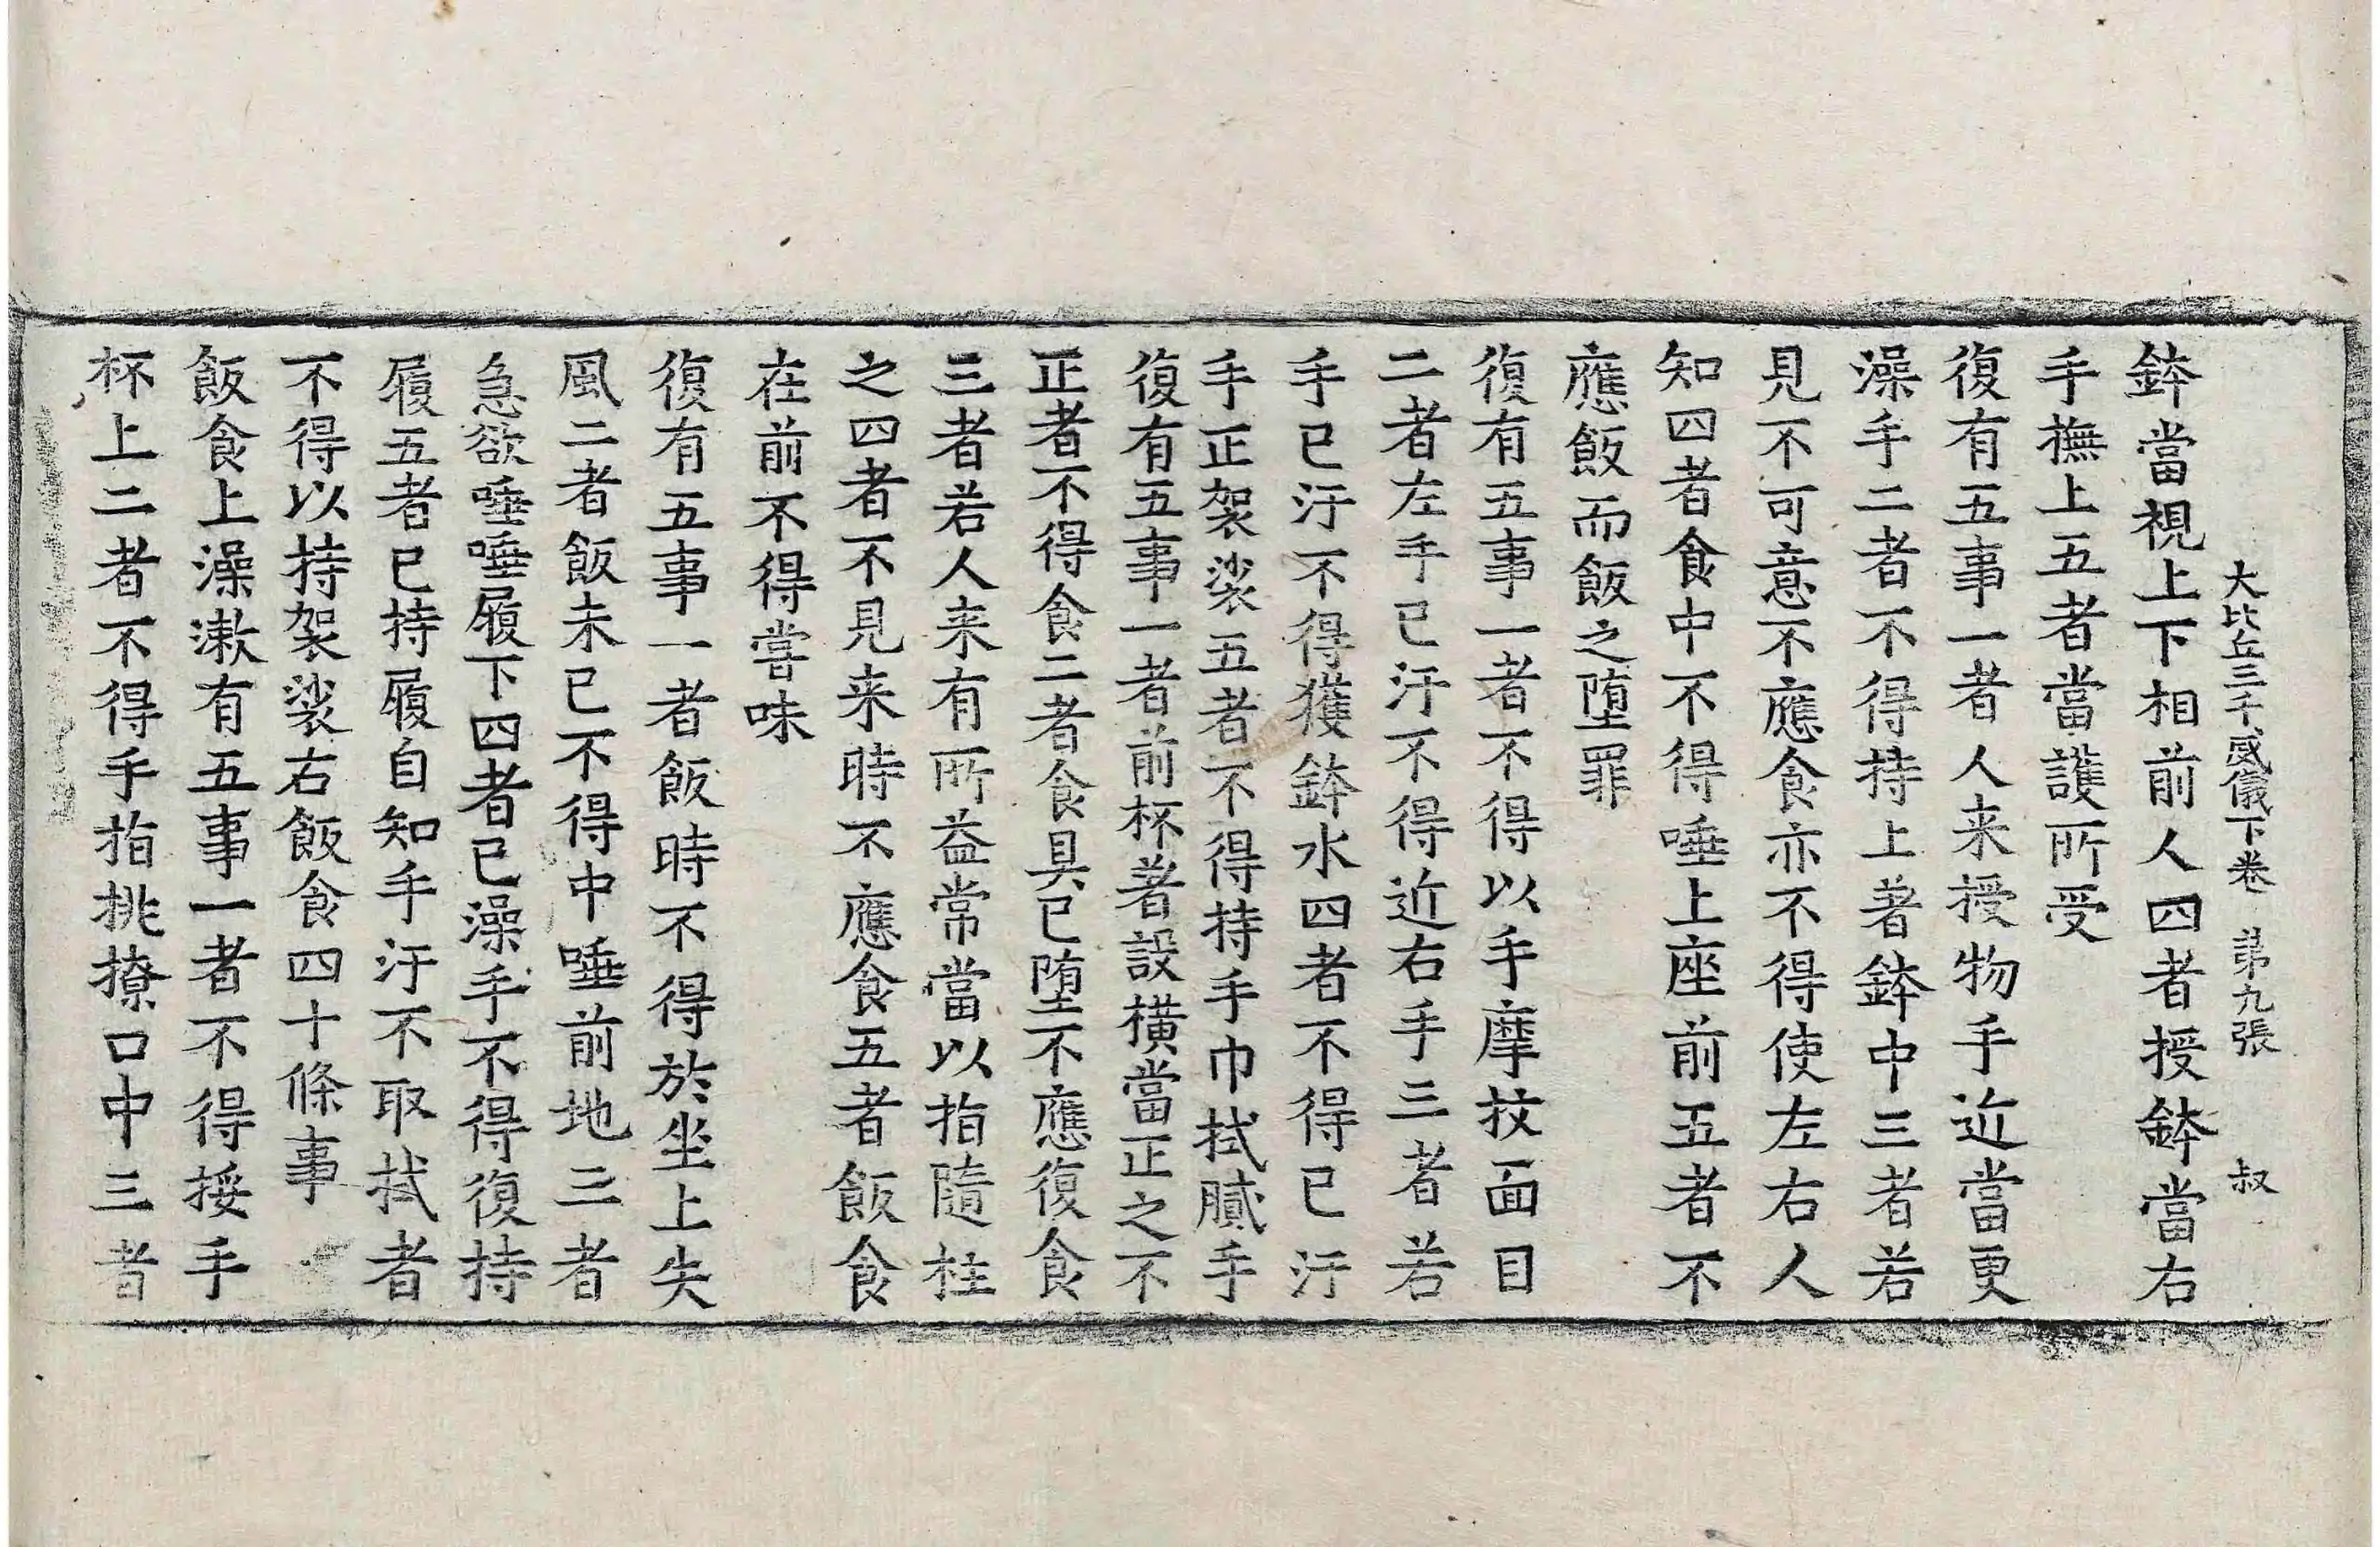 大比丘三千威儀下卷 第九張 叔
鉢當視上下相前人四者授鉢當右
手撫上五者當護所受
復有五事一者人来授物手近當更
澡手二者不得持上著鉢中三者若
見不可意不應食亦不得使左右人
知四者食中不得唾上座前五者不
應飯而飯之堕罪
復有五事一者不得以手摩抆面目
二者左手已汙不得近右手三者若
手已汙不得獲鉢水四者不得已汙
手正袈裟五者不得持手巾拭膩手
復有五事一者前杯著設橫當正之不
正者不得食二者食具已堕不應復食
三者若人来有所益常當以指隨拄
之四者不見来時不應食五者飯食
在前不得嘗味
復有五事一者飯時不得於坐上失
風二者飯未已不得中唾前地三者
急欲唾唾履下四者已澡手不得復持
履五者已持履自知手汙不取拭者
不得以持袈裟右飯食四十條事
飯食上澡漱有五事一者不得挼手
杯上二者不得手指挑撩口中三者